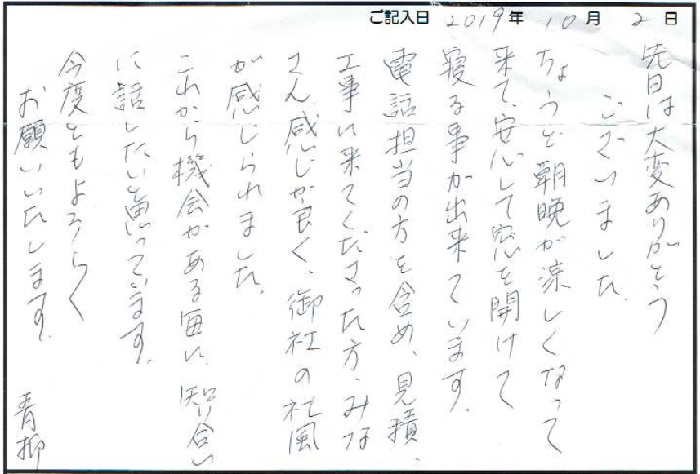 ご記入日 2019年 10月 2日
先日は大変ありがとう
ございました。
ちょうど朝晩が涼しくなって
来て、安心して窓を開けて
寝る事が出来ています。
電話担当の方を含め、見積、
工事に来てくださった方、みな
さん感じが良く、御社の社風
が感じられました。
これから機会がある毎に、知り合い
に話したいと思っています。
今度ともよろしく
お願いいたします。
青柳